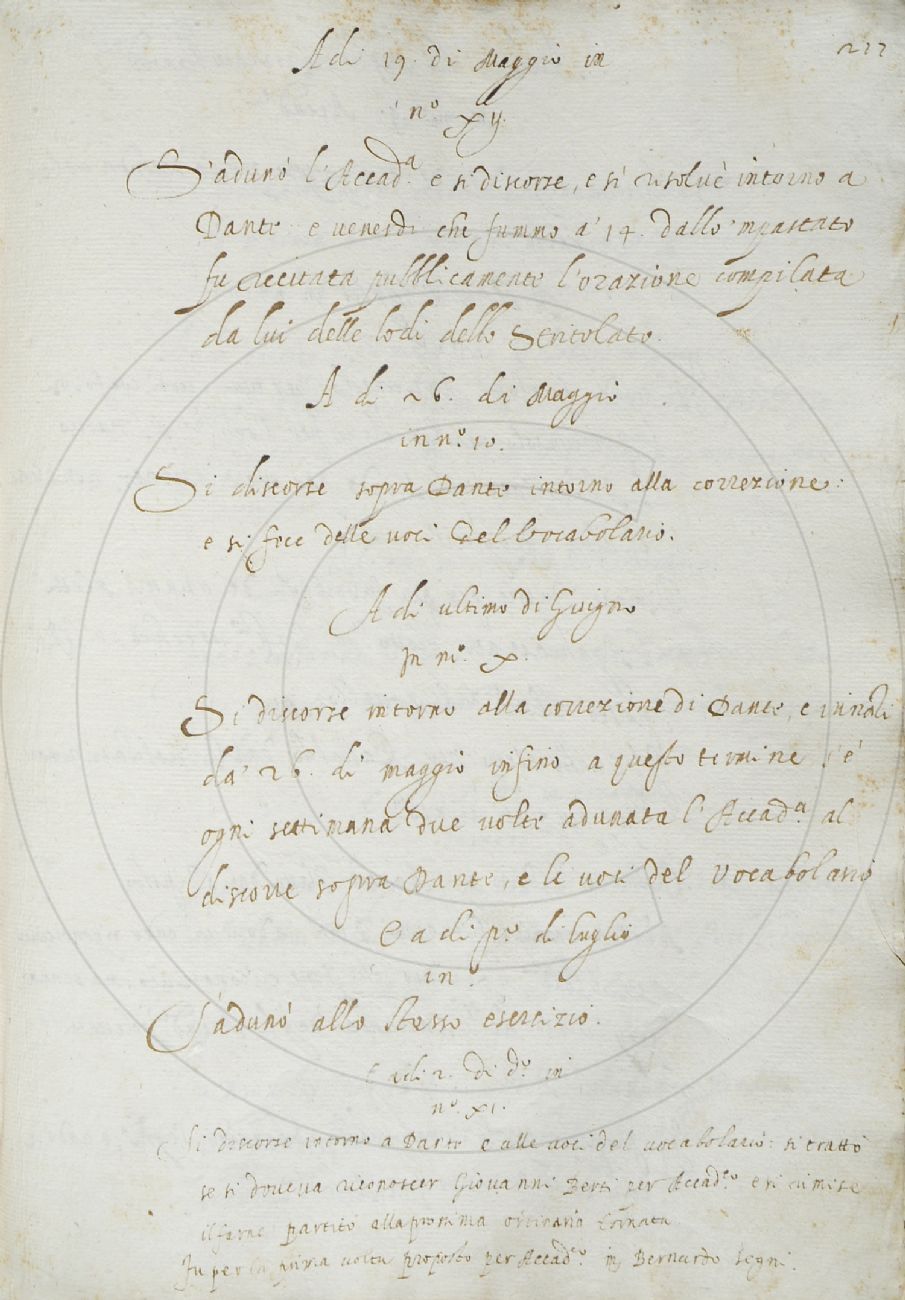 A di 19. di Maggio in
217
n.º xij.
S'adunò l'Accad.ª e si discorse, e si risolvè intorno a
Dante e venerdi che fummo a' 14. dallo 'mpastato
fu recitata pubblicamente l'orazione compilata
da lui delle lodi dello Stritolato.
A di 26. di Maggio
in n.º 10.
Si discorse sopra Dante intorno alla correzione:
e si fece delle voci del Vocabolario.
A di ultimo di Giugno
In n.º X.
Si discorse intorno alla correzione di Dante, e innanzi
da' 26. di maggio infino a questo termine s'è
ogni settimana due volte adunata l'Accad.ª al
discorre sopra Dante, e le voci del Vocabolario
E a di p.º di luglio
in
S'adunò allo stesso esercizio.
E adi 2. di d.º in
n.º XI.
Si discorse intorno a Dante e alle voci del vocabolario: si trattò
se si doveva riconoscer Giovanni Berti per Accad.co e si rimise
il farne partito alla prossima ordinaria tornata
Fu per la prima volta proposto per Accad.co Bernardo Segni.